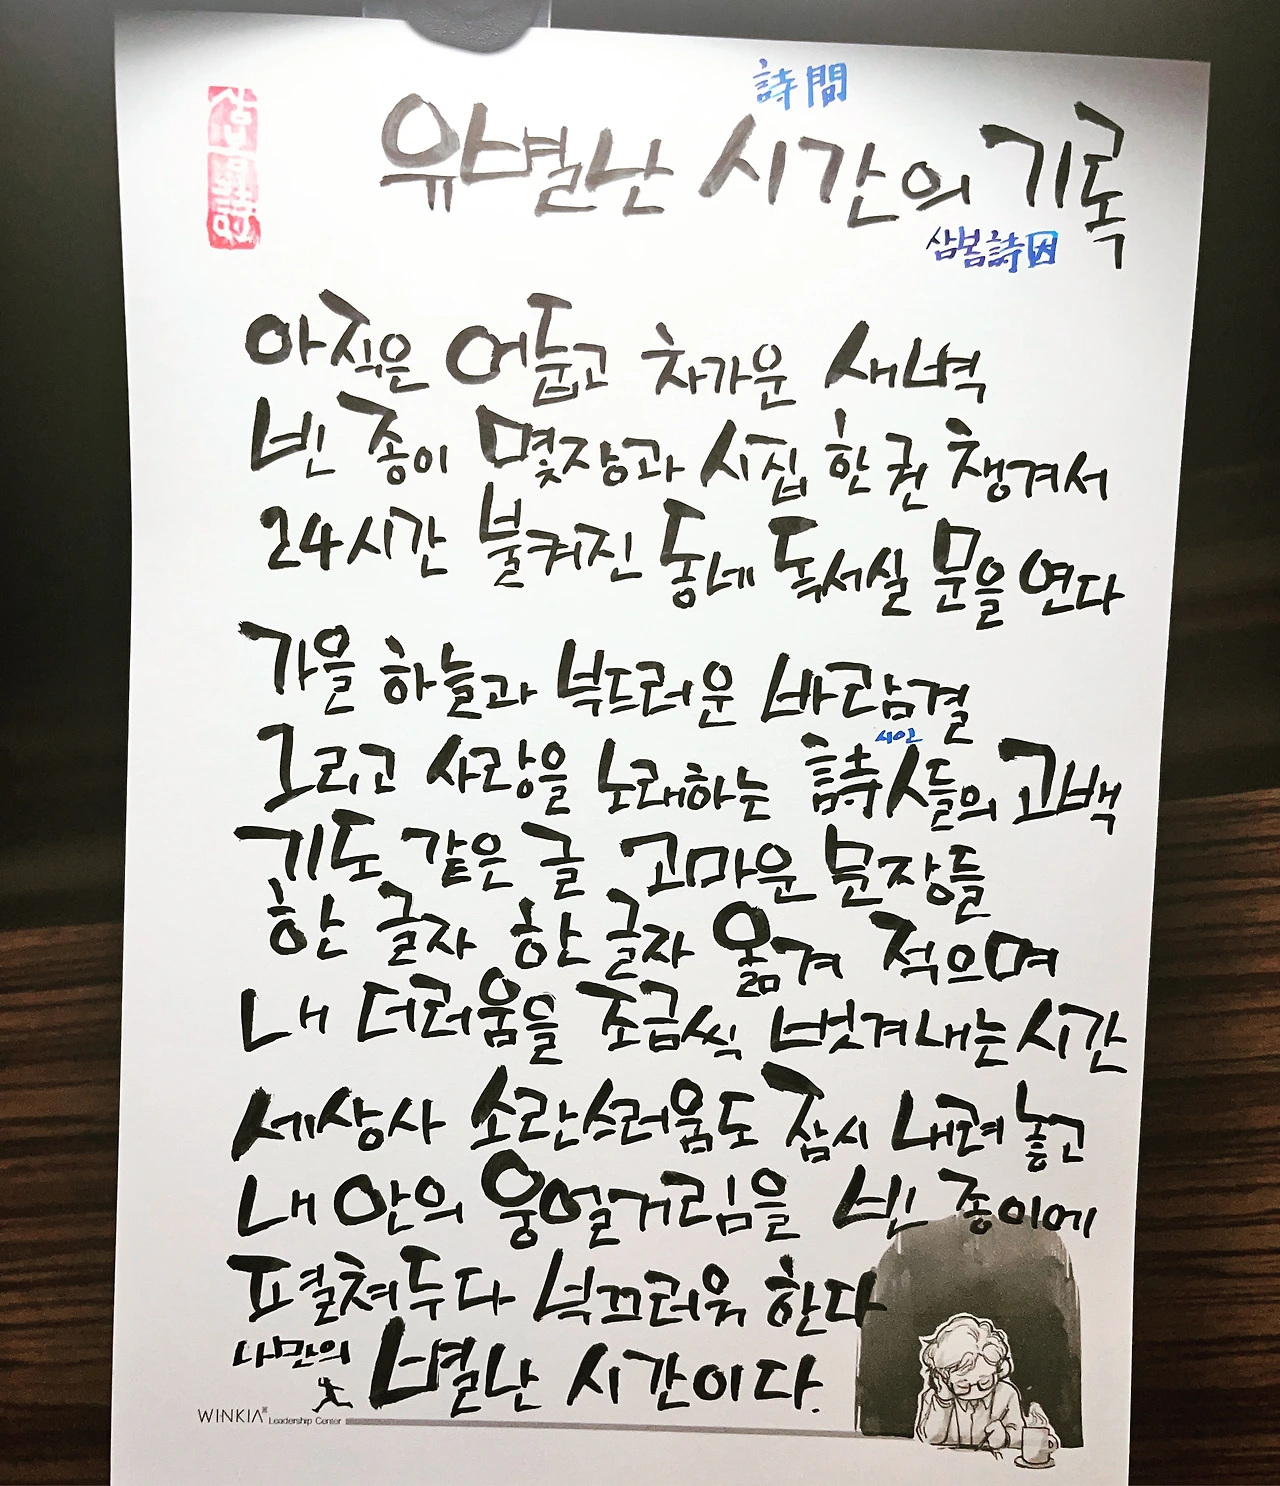 詩間
유별난 시간의 기록
삼봄詩因
아직은 어둡고 차가운 새벽
빈 종이 몇장과 시집 한 권 챙겨서
24시간 불켜진 동네 독서실 문을 연다
가을 하늘과 부드러운 바람결
시인
그리고 사랑을 노래하는 詩人들의 고백
기도 같은 글 고마운 문장들
한 글자 한 글자 옮겨 적으며
내 더러움을 조금씩 벗겨내는 시간
세상사 소란스러움도 잠시 내려 놓고
내 안의 웅얼거림을 빈 종이에
펼쳐두다 부끄러워 한다
나만의 별난 시간이다.
WINKIA Leadership Center